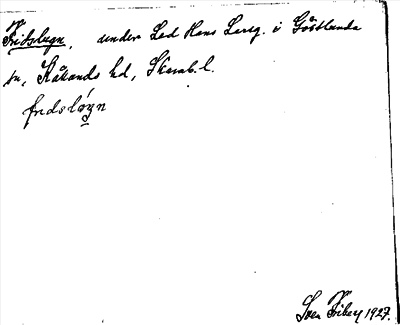 Fridslugn, under Led Hans Larsg. i Götlunda
sn, Kåkinds hd, Skarab. l.
fredsløyn
Sven Friberg 1927.